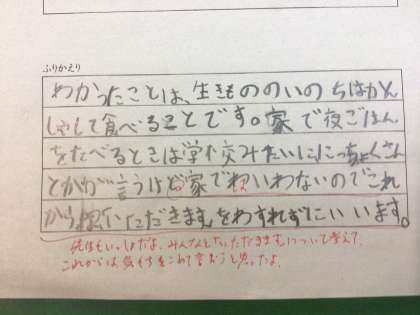 ふりかえり
わかったことは、生きもののいのちはかん
しゃして食べることです。家で夜ごはん
をたべるときは学校みたいににっちょくさん
とかが言うけど家でわいわないのでこれ
からはいただきますをわすれずにいいます。
先生もいっしょだよ。みんなといただきますについて考えて、
これからは気もちをこめて言おうと思ったよ。